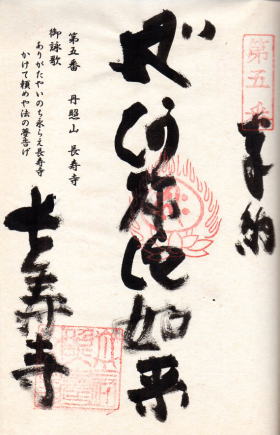 第五番
奉納
阿弥陀如来
長寿寺
第五番 丹照山 長寿寺
御詠歌
ありがたやいのち永らえ長寿寺
かけて頼めや法の夢告げ